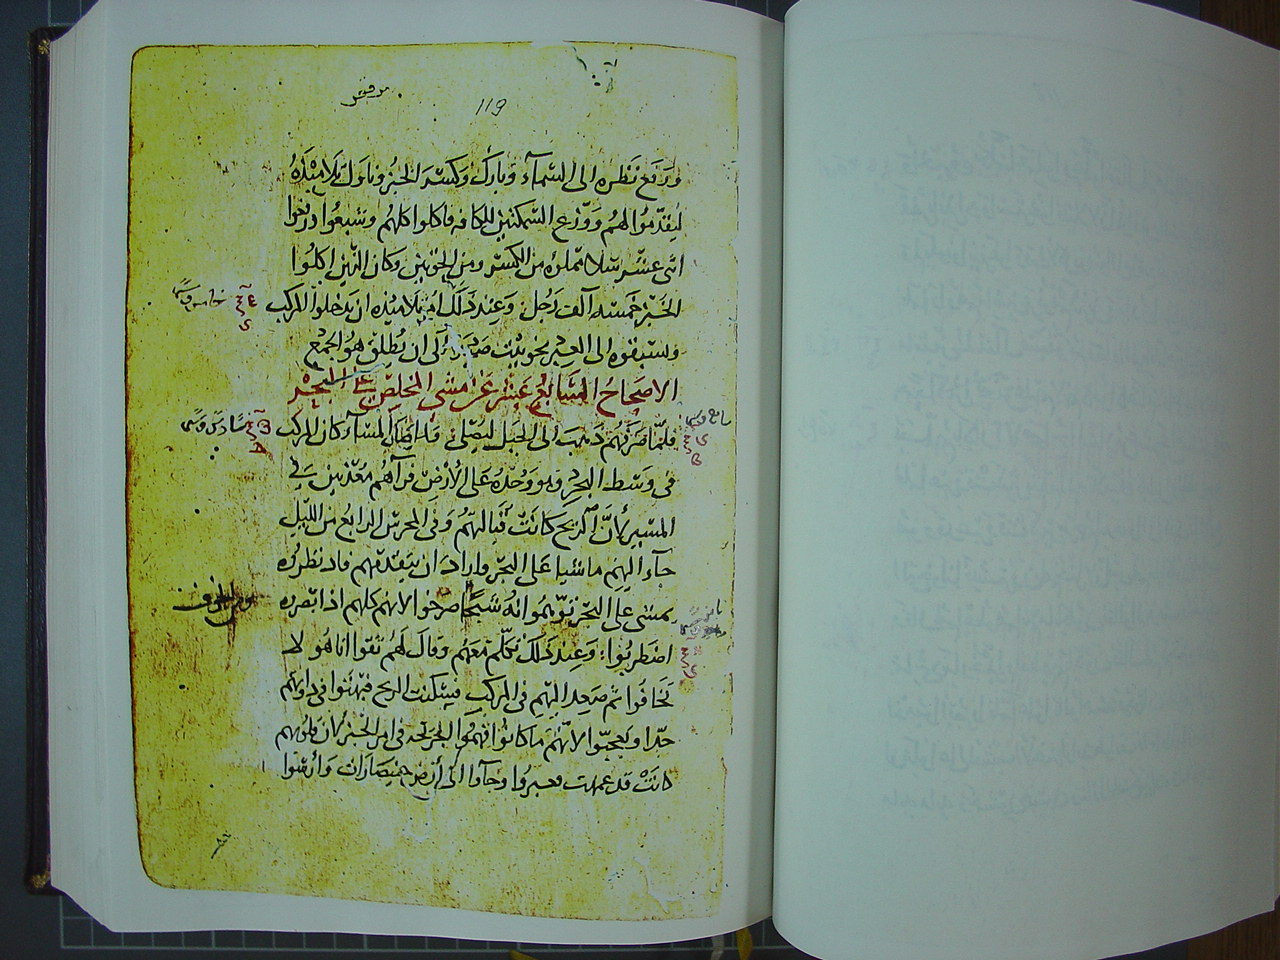 مرقس
119
ورَفع نَظره الى السَّمآء وَبارَك وَكسَر الخبز وناوَل تلاميذه
ليقدّموا لهم وَوَزع السَّمكتين للكافه فاكلوا كلهم وشبعُوا ورفعوا
اثنى عشَر سَلا مملوه من الكسَر ومن الحوتين وكان الذين اكلُوا
الخبز خَمسَه آلف رَجُل وَعِند ذَلك امر تلاميذه ان يدخلوا المركب
وسبقوه الى العبر نحو بيت صَيدَا الى ان يُطلق هو الجمع
الاصحَاحُ السَّابع عشر عَن مشى المخلص على البحر
فلمّا صَرَفهُم ذهبَ الى الجبَل ليُصَلى ولما كان المسآء كان المركب
فى وَسَط البحر وهو وَحْدَهُ عَلى الأرْض فرآهُم مُعَذبين فى
المسَير لأنَّ الريح كانَتْ قُبالهَمُ وَفى المحرَس الرابع من الليل
جآء اليهم مَاشيا عَلى البَحر واراد ان يتقدمهم فاد نظروه
يمشى على البحر توَّهمُوا انهُ شَبحًا صرخوا لانهم كلهم اذا بَصروه
اضطربُوا وَعِند ذلك تكلّم مَعَهم وقال لهُم ثقوا انا هُو لا
تخافُوا ثم صَعد اليهم فى المركب فسَكنت الريح فبهتوا فى ذواتهم
جدّا وتعجبّوا لانّهم مَا كانوا فهمُوا فى امر الخبز لان قلوبهم
كانَتْ قد عميت فعبروا وجآوا الى أرض جنيصَارات وَأرسَوا